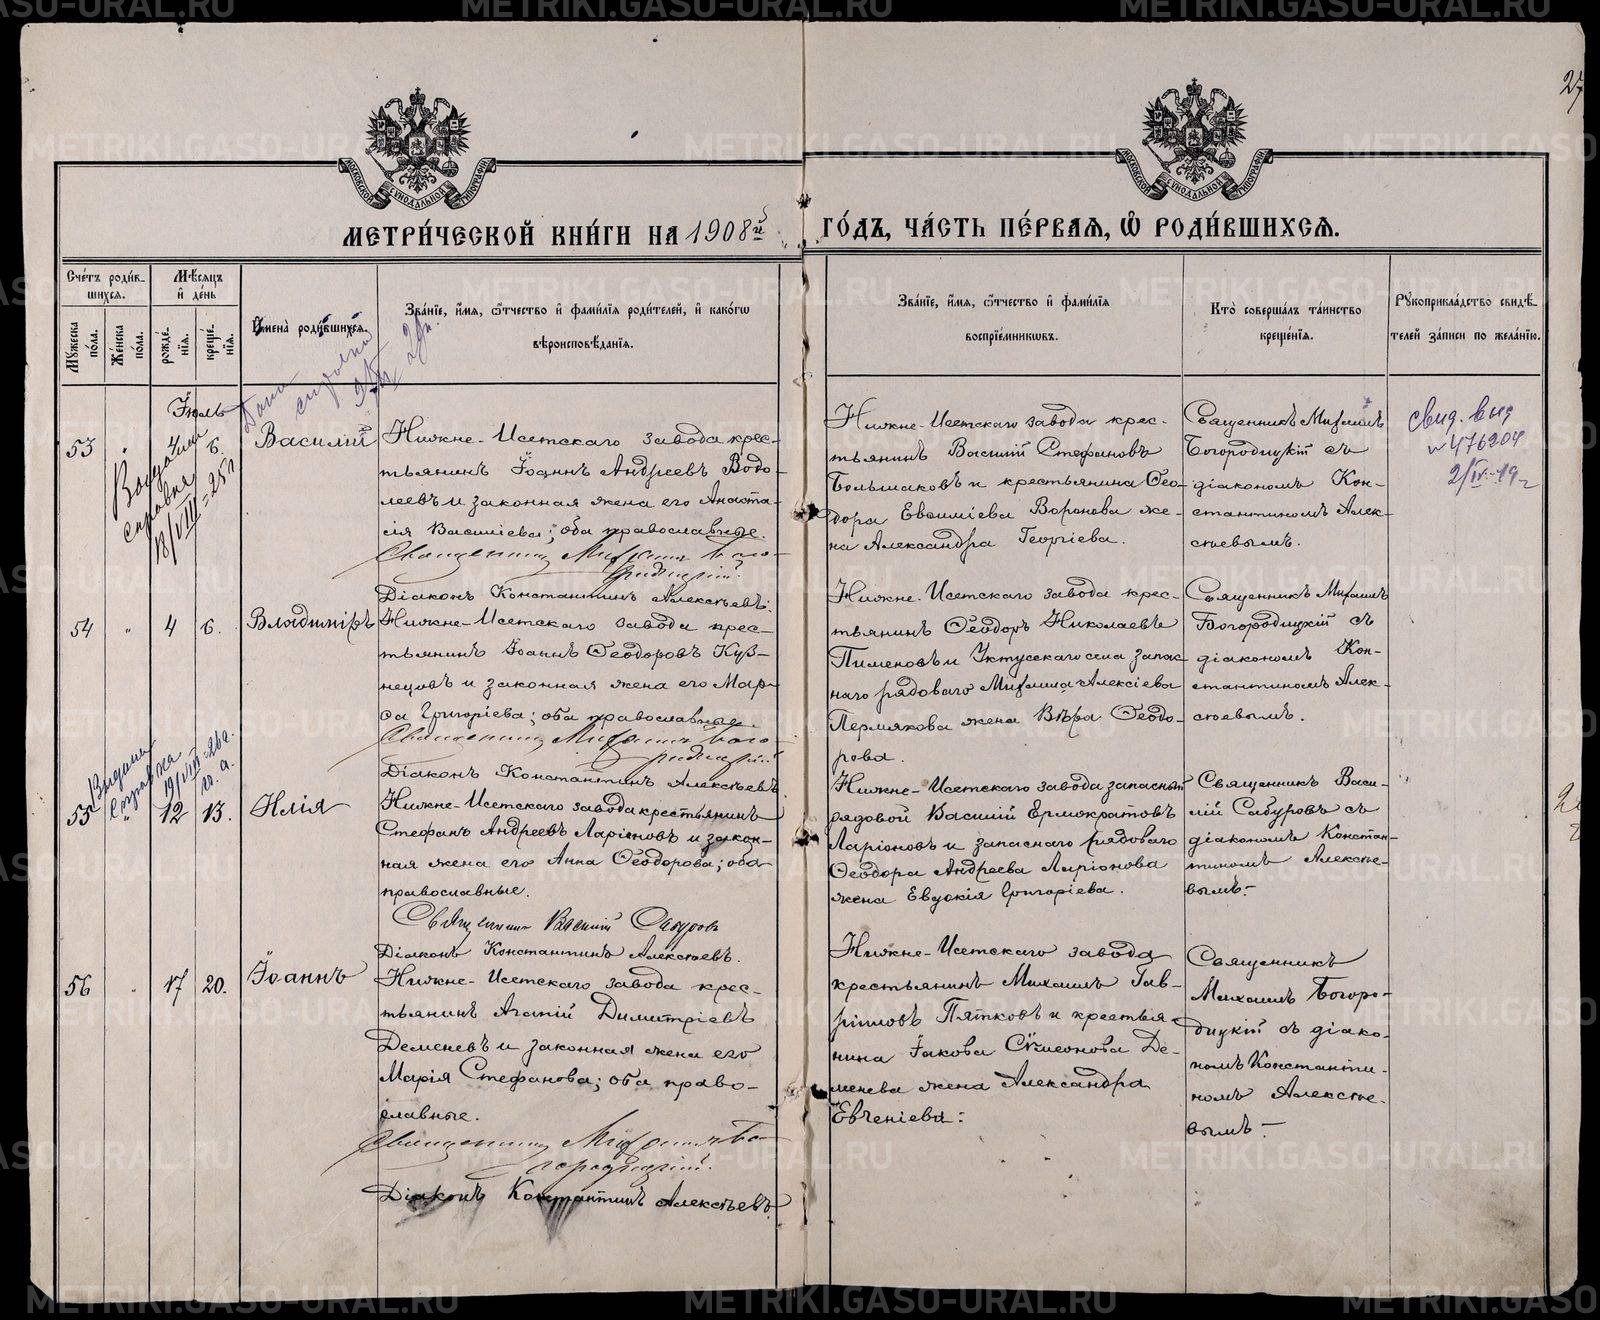 27
МОСКОВСКОЙ СѴНОДАЛЬНОЙ ТИПОГРАФІИ
МОСКОВСКОЙ СѴНОДАЛЬНОЙ ТИПОГРАФІИ
МЕТРИ́ЧЕСКОЙ КНИ́ГИ НА 1908й ГО́ДЪ, ЧА́СТЬ ПЕ́РВАѦ, Ѡ҆ РОДИ́ВШИХСѦ.
Сче́тъ роди́в-
шихсѧ.
Мꙋжеска по́ла.
Же́нска по́ла.
Мѣ́сѧцъ
и҆ де́нь
рожде́-
нїѧ.
креще́-
нїѧ.
И҆мена̀ роди́вшихсѧ.
Зва́нїе, и҆́мѧ, ѻ҆́тчество и҆ фамі́лїѧ роди́телей, и҆ како́гѡ
вѣроисповѣ́данїѧ.
Зва́нїе, и҆́мѧ, ѻ҆́тчество и҆ фамі́лїѧ
воспрїе́мникѡвъ.
Кто̀ соверша́лъ та́инство
креще́нїѧ.
Рꙋкоприкла́дство свидѣ́-
телей за́писи по жела́нїю.
Дана
справка
Іюль
53 " 4 6.
Василій
Нижне-Исетскаго завода крес-
тьянинъ Іоаннъ Андреевъ Водо-
леевъ и законная жена его Анаста-
сія Василіева; оба православные.
Священникъ Михаилъ Бого-
родицкій.
Діаконъ Константинъ Алексѣевъ.
Нижне-Исетскаго завода крес-
тьянинъ Василій Стефановъ
Большаковъ и крестьянина Ѳео-
дора Евѳиміева Воронова же-
на Александра Георгіева.
Священникъ Михаилъ
Богородицкій съ
діакономъ Кон-
стантиномъ Алек-
сѣевымъ.
свид. выд
№ 476204
2/IV-19 г
Выдана
справка
18/VIII=25г
54 " 4 6.
Владиміръ
Нижне-Исетскаго завода крес-
тьянинъ Іоаннъ Ѳеодоровъ Куз-
нецовъ и законная жена его Мар-
ѳа Григоріева; оба православные.
Священникъ Михаилъ Бого-
родицкій
Діаконъ Константинъ Алексѣевъ.
Нижне-Исетскаго завода крес-
тьянинъ Ѳеодоръ Николаевъ
Пименовъ и Уктусскаго села запас-
наго рядоваго Михаила Алексіева
Пермякова жена Вѣра Ѳеодо-
рова.
Священникъ Михаилъ
Богородицкій съ
діакономъ Кон-
стантиномъ Алек-
сѣевымъ.
Выдана
справка
19/VIII-26г.
55 " 12 13.
Илія
Нижне-Исетскаго завода крестьянинъ
Стефанъ Андреевъ Ларіоновъ и закон-
ная жена его Анна Ѳеодорова; оба
православные.
Священникъ Василій Сабуровъ
Діаконъ Константинъ Алексѣевъ.
Нижне-Исетскаго завода запасный
рядовой Василій Ермократовъ
Ларіоновъ и запаснаго рядоваго
Ѳеодора Андреева Ларіонова
жена Евдокія Григоріева.
Священникъ Васи-
лій Сабуровъ съ
діакономъ Констан-
тиномъ Алексѣе-
вымъ.
56 " 17 20.
Іоаннъ
Нижне-Исетскаго завода крес-
тьянинъ Агапій Димитріевъ
Деменевъ и законная жена его
Марія Стефанова; оба право-
славные.
Священникъ Михаилъ Бо-
городицкій.
Діаконъ Константинъ Алексѣевъ.
Нижне-Исетскаго завода
крестьянинъ Михаилъ Гав-
ріиловъ Пятковъ и крестья-
нина Іакова Сѵмеонова Де-
менева жена Александра
Евгеніева.
Священникъ
Михаилъ Богоро-
дицкій съ діако-
номъ Константи-
номъ Алексѣе-
вымъ.
METRIKI.GASO-URAL.RU